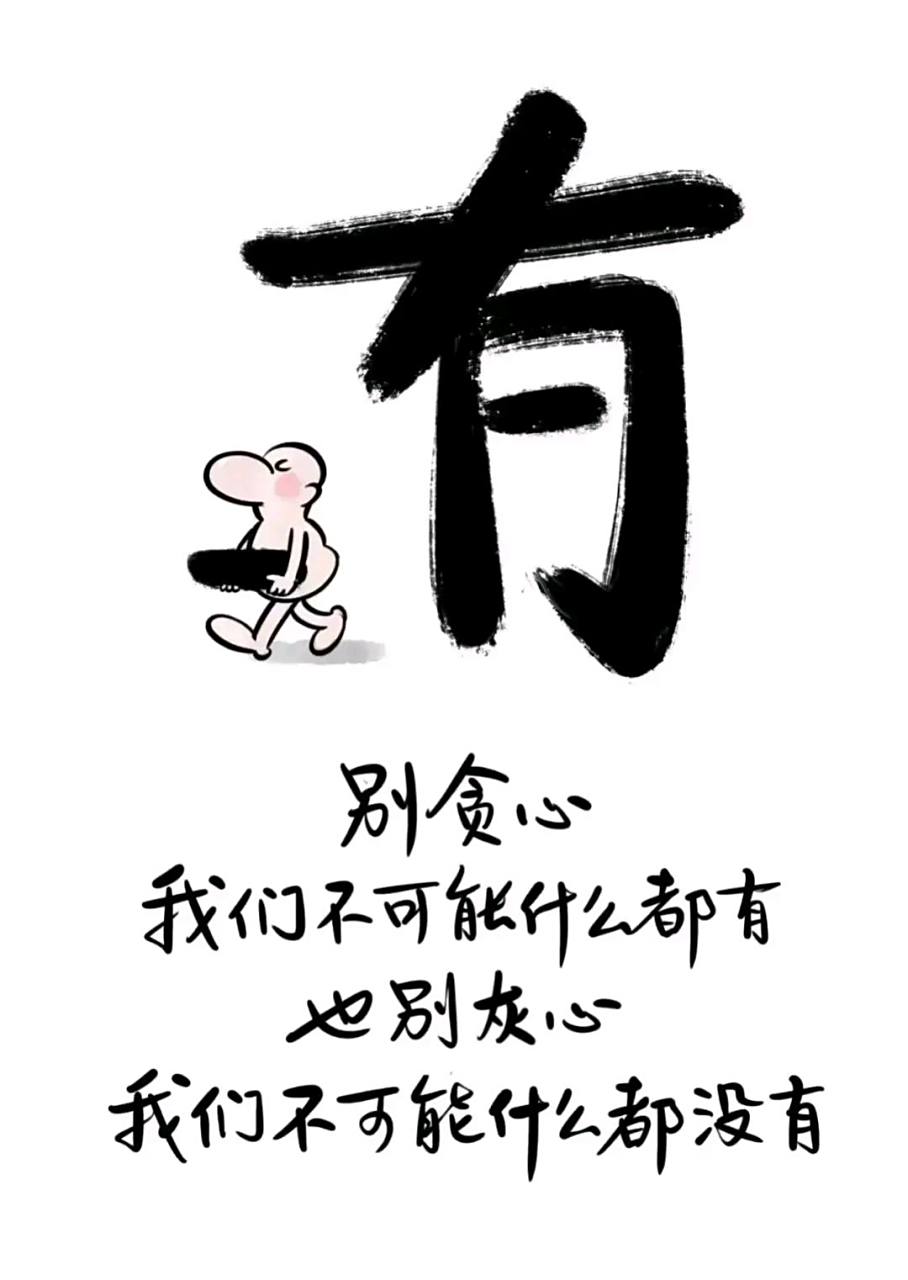 有
别贪心
我们不可能什么都有
也别灰心
我们不可能什么都没有